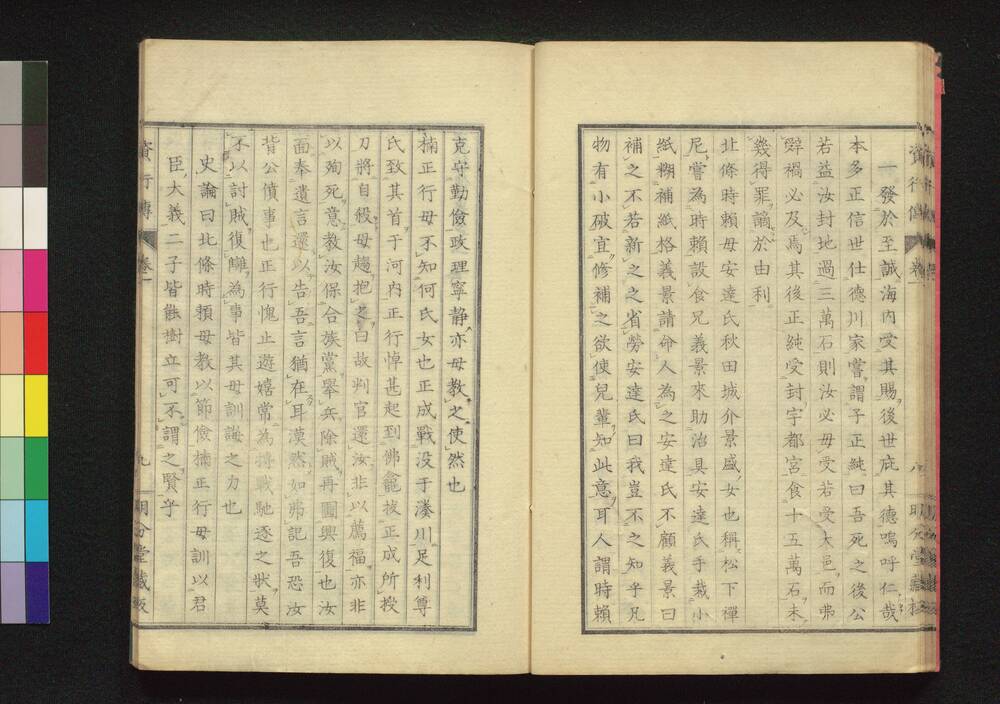 一發於至誠海内受其賜後世庇其德嗚呼仁哉
本多正信世仕德川家嘗謂子正純曰吾死之後公
若益汝封地過三萬石則汝必毋受若受大邑而弗
辤禍必及焉其後正純受封宇都宮食十五萬石未
幾得罪謫於由利
北條時賴毋安達氏秋田城介景盛女也稱松下禪
尼嘗為時賴設食兄義景來助治具安達氏手裁小
紙糊補紙格義景請命人為之安達氏不顧義景曰
補之不若新之之省勞安達氏曰我豈不之知乎凡
物有小破宜修補之欲使兒輩知此意耳人謂時賴
克守勤儉政理寧静亦毋教之使然也
楠正行毋不知何氏女也正成戰没于湊川足利尊
氏致其首于河内正行悼甚起到佛龕拔正成所授
刀將自殺毋趨抱之曰故判官還汝非以薦福亦非
以殉死意教汝保合族黨舉兵除賊再圖興復也汝
面奉遺言還以告吾言猶在耳漠然如弗記吾恐汝
背公僨事也正行愧止遊嬉常為將戰馳逐之狀莫
不以討賊復讎為事皆其毋訓誨之力也
史論曰北條時賴毋教以節儉楠正行毋訓以君
臣大義二子皆能樹立可不謂之賢乎
資行傳 卷一 九 明分堂藏板